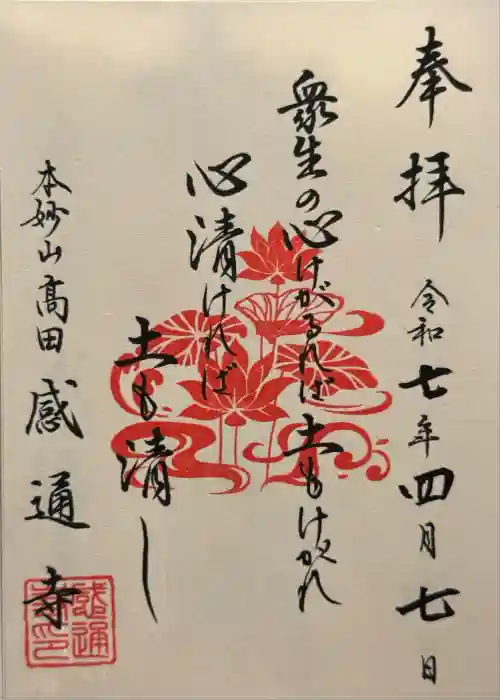 奉拝
令和七年四月七日
衆生の心けがるれば土もけがれ
心清ければ
土も清し
本妙山髙田感通寺
感通寺印